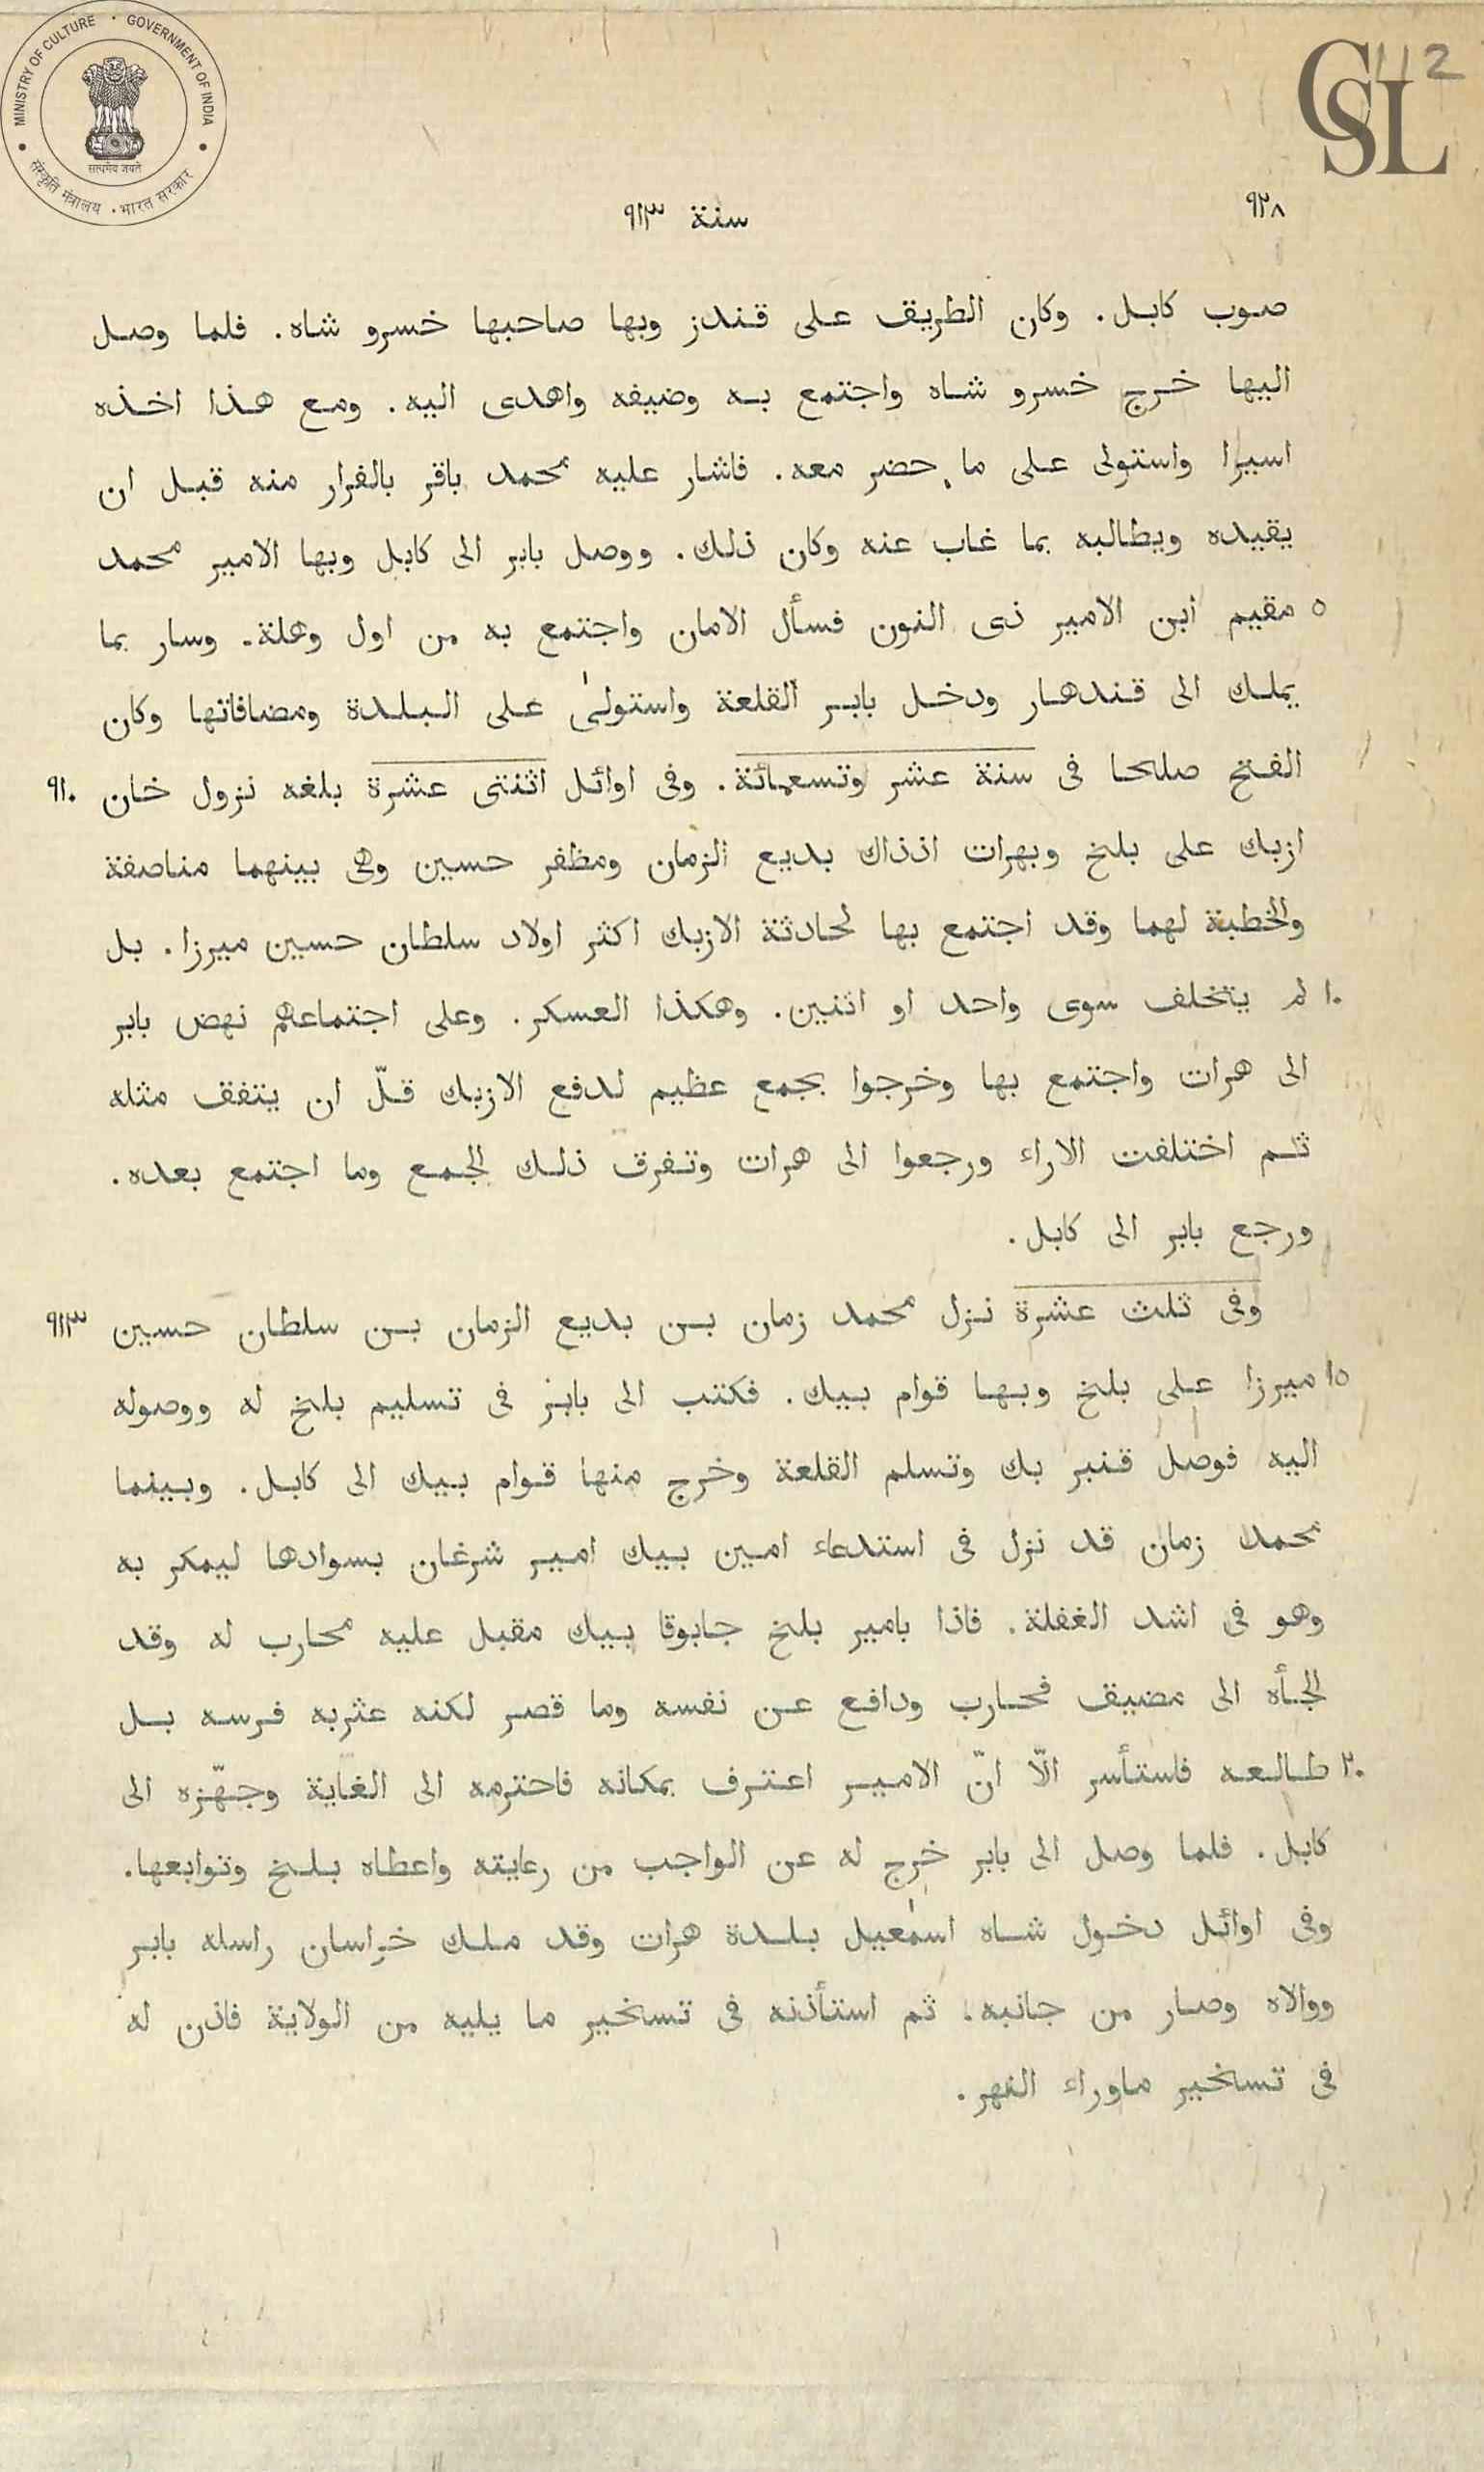 MINISTRY OF CULTURE · GOVERNMENT OF INDIA
सत्यमेव जयते
संस्कृति मंत्रालय · भारत सरकार
CSL
112
٩٢٨
سنة ٩١٣
صوب كابل. وكان الطريق على قندز وبها صاحبها خسرو شاه. فلما وصل
اليها خرج خسرو شاه واجتمع به وضيفه واهدى اليه. ومع هذا اخذه
اسيرا واستولى على ما حضر معه. فاشار عليه محمد باقر بالفرار منه قبل ان
يقيده ويطالبه بما غاب عنه وكان ذلك. ووصل بابر الى كابل وبها الامير محمد
٥ مقيم ابن الامير ذى النون فسأل الامان واجتمع به من اول وهلة. وسار بما
يملك الى قندهار ودخل بابر القلعة واستولىٰ على البلدة ومضافاتها وكان
الفتح صلحا فى سنة عشر وتسعمائة. وفى اوائل اثنتى عشرة بلغه نزول خان ٩١٠
ازبك على بلخ وبهرات اذذاك بديع الزمان ومظفر حسين وهى بينهما مناصفة
والخطبة لهما وقد اجتمع بها لحادثة الازبك اكثر اولاد سلطان حسين ميرزا. بل
١٠ لم يتخلف سوى واحد او اثنين. وهكذا العسكر. وعلى اجتماعهم نهض بابر
الى هرات واجتمع بها وخرجوا بجمع عظيم لدفع الازبك قلّ ان يتفق مثله
ثم اختلفت الاراء ورجعوا الى هرات وتفرق ذلك الجمع وما اجتمع بعده.
ورجع بابر الى كابل.
وفى ثلث عشرة نزل محمد زمان بن بديع الزمان بن سلطان حسين ٩١٣
١٥ ميرزا على بلخ وبها قوام بيك. فكتب الى بابر فى تسليم بلخ له ووصوله
اليه فوصل قنبر بك وتسلم القلعة وخرج منها قوام بيك الى كابل. وبينما
محمد زمان قد نزل فى استدعاء امين بيك امير شرغان بسوادها ليمكر به
وهو فى اشد الغفلة. فاذا بامير بلخ جابوقا بيك مقبل عليه محارب له وقد
الجأه الى مضيق فحارب ودافع عن نفسه وما قصر لكنه عثربه فرسه بل
٢٠ طالعه فاستأسر الّا انّ الامير اعترف بمكانه فاحترمه الى الغاية وجهّزه الى
كابل. فلما وصل الى بابر خرج له عن الواجب من رعايته واعطاه بلخ وتوابعها.
وفى اوائل دخول شاه اسمٰعيل بلدة هرات وقد ملك خراسان راسله بابر
ووالاه وصار من جانبه. ثم استأذنه فى تسخير ما يليه من الولاية فاذن له
فى تسخير ماوراء النهر.